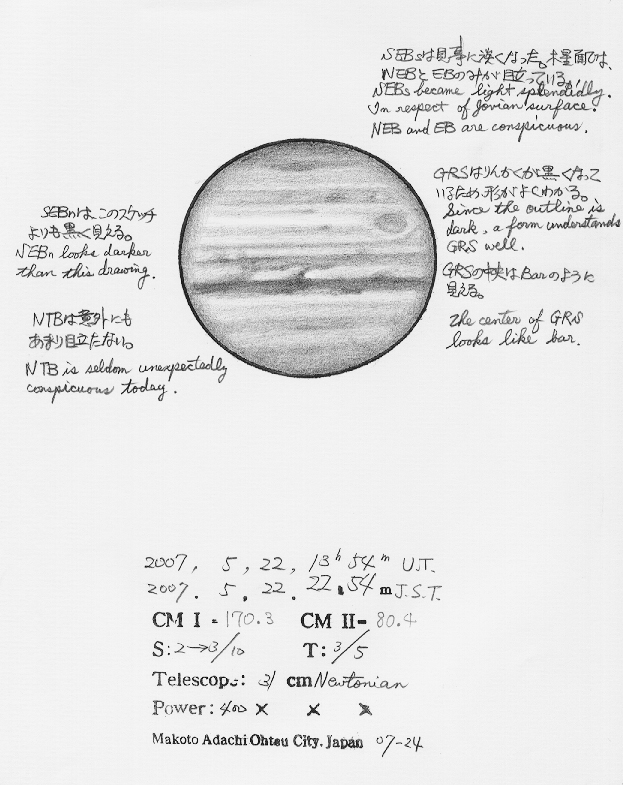 SEBsは見事に淡くなった。木星面では、
NEBとEBのみが目立っている。
SEBs became light splendidly.
In respect of Jovian surface.
NEB and EB are conspicuous.
GRSはりんかくが黒くなって
いるため形がよくわかる。
Since the outline is
dark, a form understands
GRS well.
GRSの中央はBarのように
見える。
The center of GRS
looks like bar.
SEBnは、このスケッチ
よりも黒く見える。
SEBn looks darker
than this drawing.
NTBは意外にも
あまり目立たない。
NTB is seldom unexpectedly
conspicuous today.
2007, 5, 22, 13h 54m U.T.
2007. 5. 22. 22.54m J.S.T.
CM I - 170.3 CM II- 80.4
S: 2→3/10 T: 3/5
Telescope: 31 cm Newtonian
Power: 400 × × ×
Makoto Adachi Ohtsu City. Japan 07-24